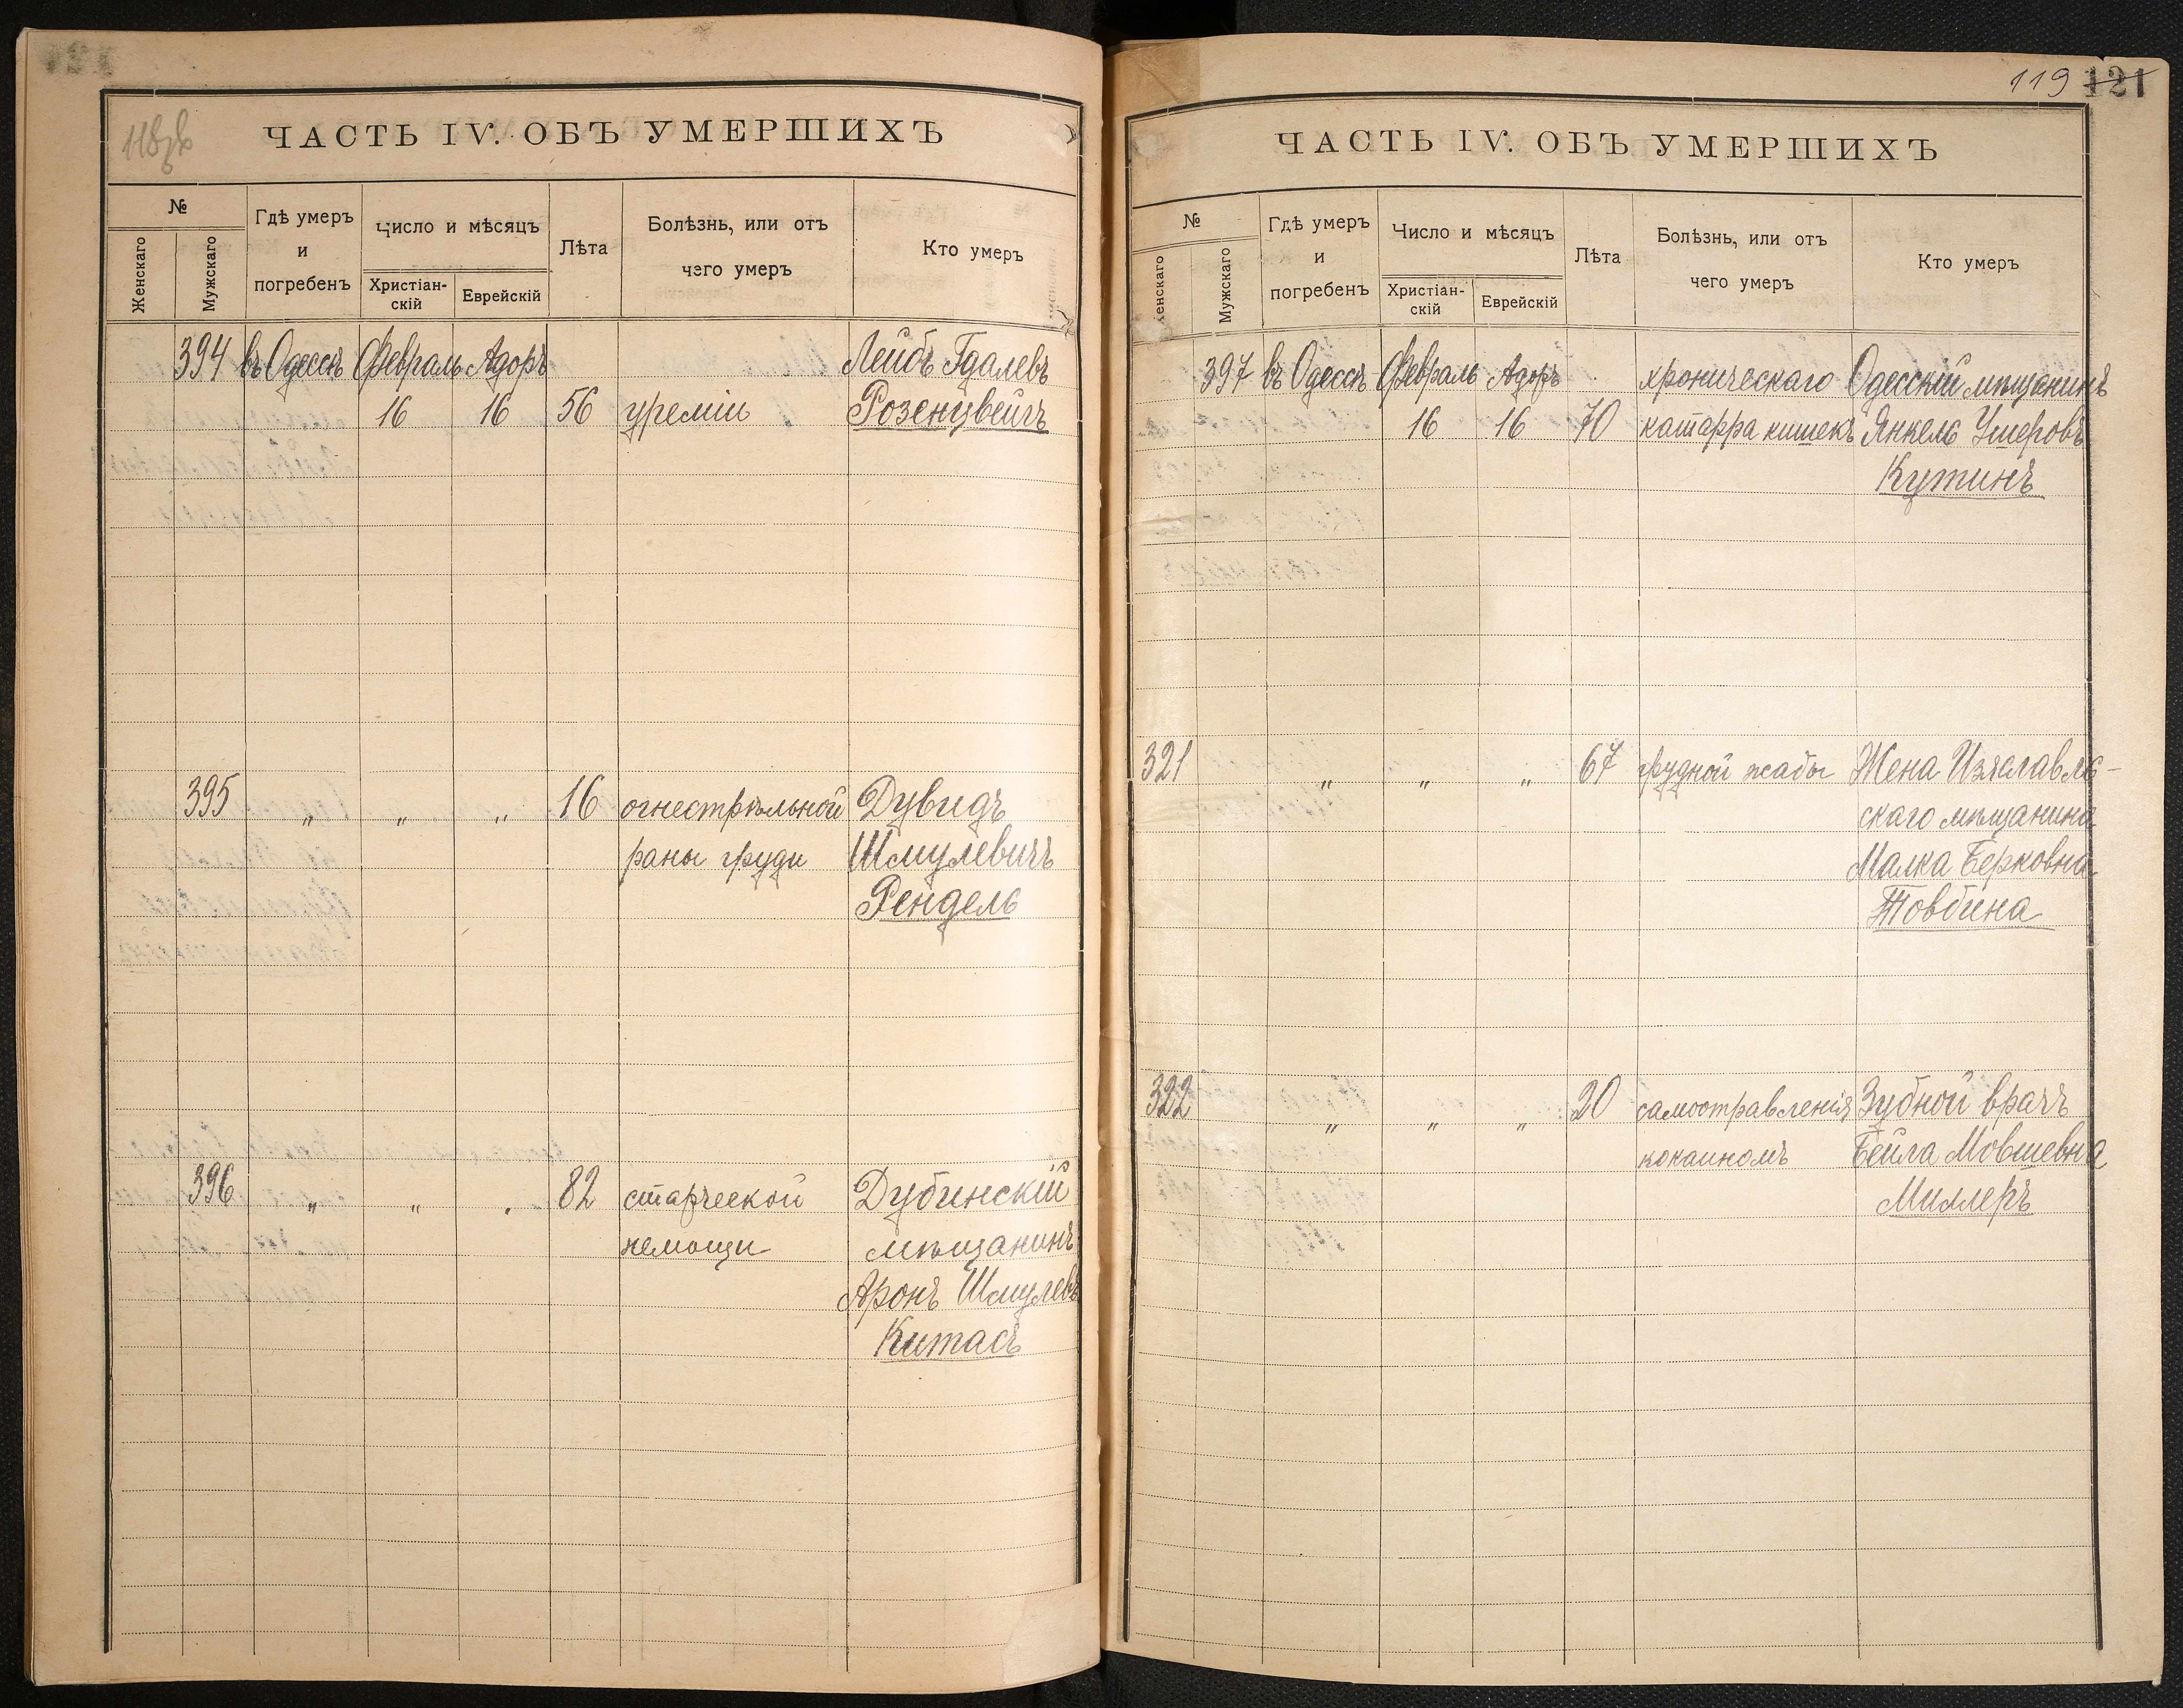 ЧАСТЬ IV. ОБЪ УМЕРШИХЪ
№
Женскаго
Мужскаго
Гдѣ умеръ
и
погребенъ
Число и мѣсяцъ
Христіан-
скій
Еврейскій
Лѣта
Болѣзнь, или отъ
чего умеръ
Кто умеръ
394 въ Одессѣ Февраль Адоръ Лейбъ Гдалевъ
16 16 56 уреміи Розенцвейгъ
395 „ „ „ 16 огнестрѣльной Дувидъ
раны груди Шмулевичъ
Рендель
396 „ „ „ 82 старческой Дубинскій
немощи мѣщанинъ
Аронъ Шмулевъ
Китасъ
119 121
ЧАСТЬ IV. ОБЪ УМЕРШИХЪ
№
Женскаго
Мужскаго
Гдѣ умеръ
и
погребенъ
Число и мѣсяцъ
Христіан-
скій
Еврейскій
Лѣта
Болѣзнь, или отъ
чего умеръ
Кто умеръ
397 въ Одессѣ Февраль Адоръ хроническаго Одесскій мѣщанинъ
16 16 70 катарра кишекъ Янкель Ушеровъ
Кутинъ
321 „ „ „ 67 грудной жабы Жена Изяславль-
скаго мѣщанина
Малка Берковна
Товбина
322 „ „ „ 20 самоотравленія Зубной врачъ
кокаиномъ Бейла Мовшевна
Миллеръ